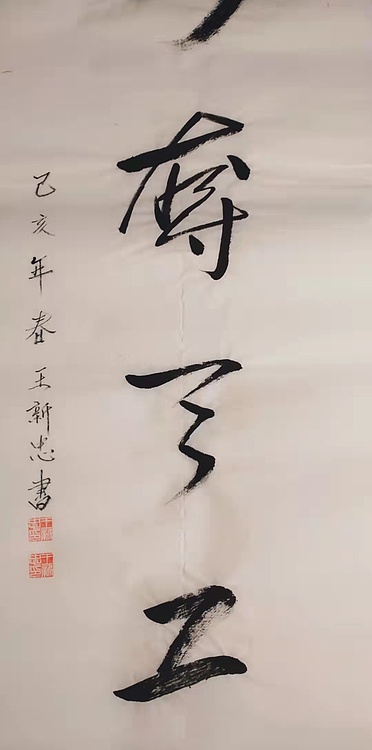 奪天工
己亥年春王新忠書